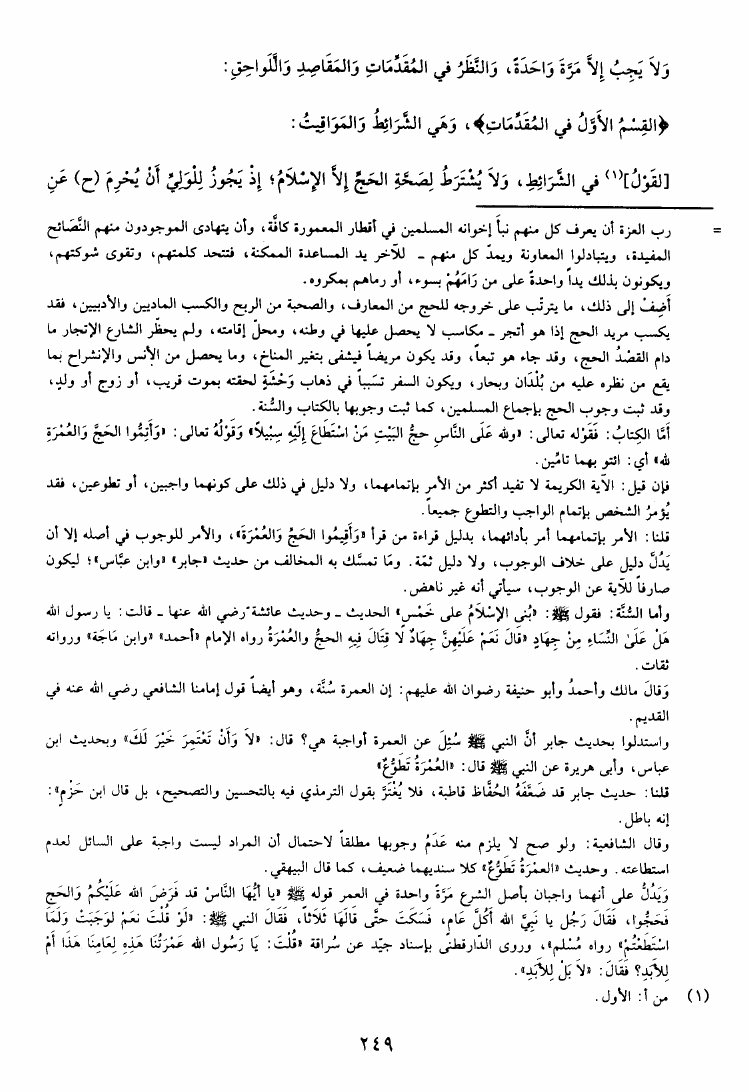 وَلاَ يَجِبُ إِلاَّ مَرَّةً وَاحَدَةً، وَالنَّظَرُ في المُقَدِّمَاتِ وَالمَقَاصِدِ وَاللَّوَاحِقِ:
﴿القِسْمُ الأَوَّلُ في المُقَدِّمَاتِ﴾، وَهَي الشَّرَائِطُ وَالمَوَاقِيتُ:
[لقَوْلُ](١) في الشَّرَائِطِ، وَلاَ يُشْتَرَطُ لِصَحَّةِ الحَجِّ إِلاَّ الإِسْلاَمُ؛ إِذْ يَجُوزُ لِلْوَلِيِّ أَنْ يُحْرِمَ (ح) عَنِ
= رب العزة أن يعرف كل منهم نبأ إخوانه المسلمين في أقطار المعمورة كافَّة، وأن يتهادى الموجودون منهم النَّصائح
المفيدة، ويتبادلوا المعاونة ويمدّ كل منهم ـ للآخر يد المساعدة الممكنة، فتتحد كلمتهم، وتقوى شوكتهم،
ويكونون بذلك يداً واحدةً على من رَامَهُمْ بسوء، أو رماهم بمكروه.
أَضِفْ إلى ذلك، ما يترتّب على خروجه للحج من المعارف، والصحبة من الربح والكسب الماديين والأدبيين، فقد
يكسب مريد الحج إذا هو أتجر ـ مكاسب لا يحصل عليها في وطنه، ومحلّ إقامته، ولم يحظّر الشارع الإتجار ما
دام القصْدُ الحج، وقد جاء هو تبعاً، وقد يكون مريضاً فيشفى بتغير المناخ، وما يحصل من الأنس والإنشراح بما
يقع من نظره عليه من بُلْدَان وبحار، ويكون السفر تسبباً في ذهاب وَحْشَةٍ لحقته بموت قريب، أو زوج أو ولدٍ،
وقد ثبت وجوب الحج بإجماع المسلمين، كما ثبت وجوبها بالكتاب والسُّنة.
أمَّا الكِتابُ: فَقَوْله تعالى: «ولله عَلَى النَّاسِ حجُّ البَيْتِ مَنْ اسْتَطَاعَ إِلَيْهِ سِبِيلاً» وَقَوْلُهُ تعالى: «وَأَتِمُّوا الحَجَّ وَالعُمْرَةَ
لله» أي: ائتو بهما تامِّين.
فإن قيل: الآية الكريمة لا تفيد أكثر من الأمر بإتمامهما، ولا دليل في ذلك على كونهما واجبين، أو تطوعين، فقد
يُؤمرُ الشخص بإتمام الواجب والتطوع جميعاً.
قلنا: الأمر بإتمامهما أمر بأدائهما، بدليل قراءة من قرأ «وَأَقِيمُوا الحَجَّ وَالعُمْرَةَ»، والأمر للوجوب في أصله إلا أن
يَدُلَّ دليل على خلاف الوجوب، ولا دليل ثمّة. ومَا تمسَّك به المخالف من حديث «جابر» «وابن عبَّاس»؛ ليكون
صارفاً للآية عن الوجوب، سيأتي أنه غير ناهض.
وأما السُّنَّة: فقول ﷺ: «بُنى الإسْلاَمُ على خَمْسٍ» الحديث ـ وحديث عائشة رضي الله عنها ـ قالت: يا رسول الله
هَلْ عَلَىٰ النِّسَاءِ مِنْ جِهَادٍ «قَالَ نَعَمْ عَلَيْهِنَّ جِهَادٌ لَا قِتَالَ فِيهِ الحجُّ والعُمْرَةُ رواه الإمام «أحمد» «وابن مَاجَة» ورواته
ثقات.
وَقَالَ مالك وأحمدُ وأبو حنيفة رضوان الله عليهم: إن العمرة سُنَّة، وهو أيضاً قول إمامنا الشافعي رضي الله عنه في
القديم.
واستدلوا بحديث جابر أنَّ النبي ﷺ سُئِلَ عن العمرة أواجبة هي؟ قال: «لاَ وَأَنْ تَعْتَمِرَ خَيْرَ لَكَ» وبحديث ابن
عباس، وأبى هريرة عن النبي ﷺ قال: «العُمْرَةُ تَطَوُّعٌ»
قلنا: حديث جابر قد ضَعَّفَهُ الحُفَّاظ قاطبة، فلا يُغْتَرَّ بقول الترمذي فيه بالتحسين والتصحيح، بل قال ابن حَزْمٍ»:
إنه باطل.
وقال الشافعية: ولو صح لا يلزم منه عَدَمُ وجوبها مطلقاً لاحتمال أن المراد ليست واجبة على السائل لعدم
استطاعته. وحديث «العمْرَةُ تَطَوُّعٌ» كلا سنديهما ضعيف، كما قال البيهقي.
وَيَدُلُّ على أنهما واجبان بأصل الشرع مَرَّةً واحدة في العمر قوله ﷺ «يا أَيُّهَا النَّاسُ قد فَرَضَ الله عَلَيْكُمُ وَالحَج
فَحَجُّوا، فَقَالَ رَجُل يا نَبيَّ الله أَكُلَّ عَامٍ، فَسَكَتَ حتَّى قالَهَا ثَلَاثاً، فَقَالَ النبي ﷺ: «لَوْ قُلْتَ نعَمْ لوَجَبَتْ وَلَمَا
اسْتَطَعْتُمْ» رواه مُسْلم»، وروى الدَّارقطنىّ بإسناد جيِّد عن سُراقة «قُلْتَ: يَا رَسُول الله عمْرَتُنَا هَذِهِ لِعَامِنَا هَذَا أَمْ
لِلأَبَدِ؟ فَقَالَ: «لاَ بَلْ لِلأَبَدِ».
(١) من أ: الأول.
٢٤٩